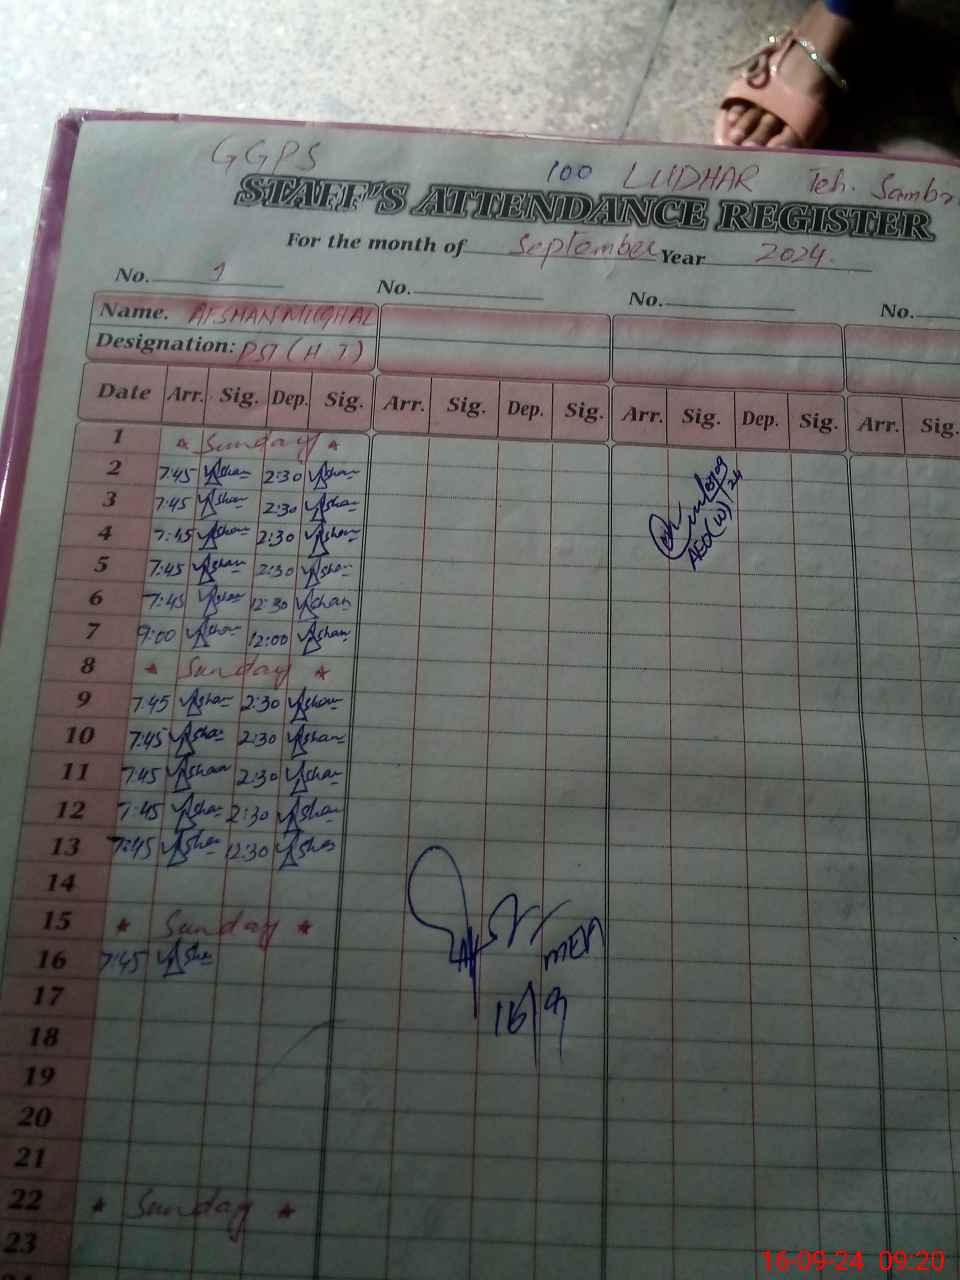 GGPS 100 LUDHAR Teh. Samba
STAFF'S ATTENDANCE REGISTER
For the month of September Year 2024.
No. 1 No. No. No.
Name. AFSHAN MUGHAL
Designation: PST (H T)
Date Arr. Sig. Dep. Sig. Arr. Sig. Dep. Sig. Arr. Sig. Dep. Sig. Arr. Sig.
1 * Sunday *
2 7:45 Afshan 2:30 Afshan
3 7:45 Afshan 2:30 Afshan
4 7:45 Afshan 2:30 Afshan
AEO(W)
5 7:45 Afshan 2:30 Afshan
6 7:45 Afshan 12:30 Afshan
7 9:00 Afshan 12:00 Afshan
8 * Sunday *
9 7:45 Afshan 2:30 Afshan
10 7:45 Afshan 2:30 Afshan
11 7:45 Afshan 2:30 Afshan
12 7:45 Afshan 2:30 Afshan
13 7:45 Afshan 12:30 Afshan
14
15 * Sunday *
MEA
16 7:45 Afshan
16/9
17
18
19
20
21
22 * Sunday *
23
16-09-24 09:20